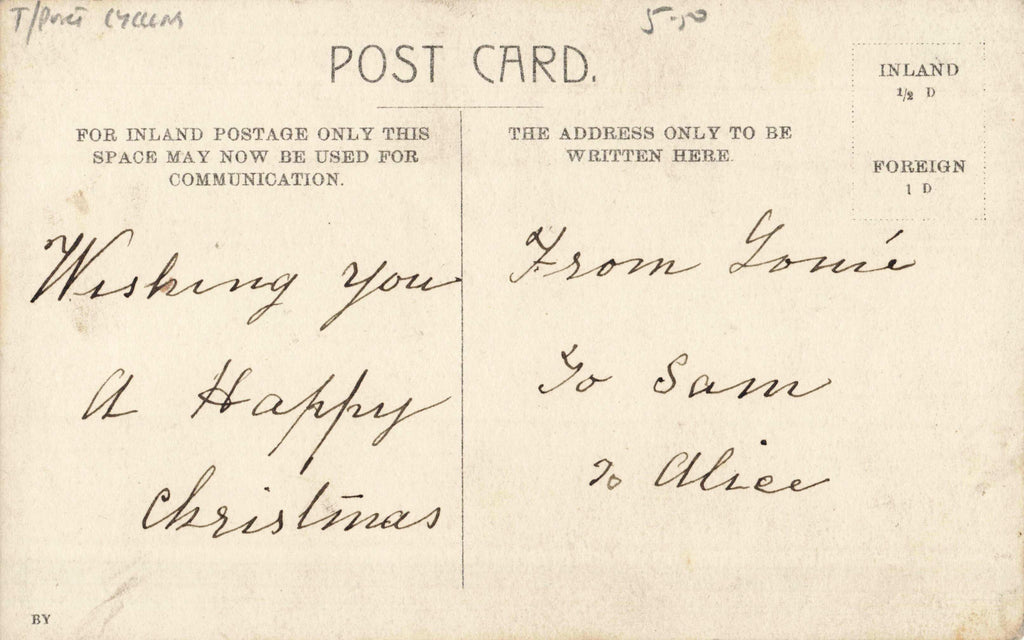 5-50
POST CARD.
FOR INLAND POSTAGE ONLY THIS
SPACE MAY NOW BE USED FOR
COMMUNICATION.
Wishing you
A Happy
Christmas
THE ADDRESS ONLY TO BE
WRITTEN HERE.
INLAND
1/2 D
FOREIGN
1 D
From Louie
To Sam
& Alice
BY